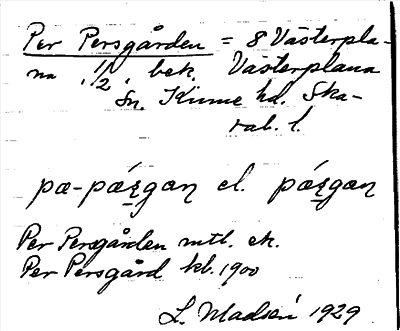 Per Persgården = 8 Västerpla-
na 1/2, bek. Västerplana
Sn. Kinne hd. Ska-
rab. l.
pæ-pǽr̲gan el. pǽr̲gan
Per Persgården mtl. ek.
Per Persgård kb. 1900
L. Madsén 1929